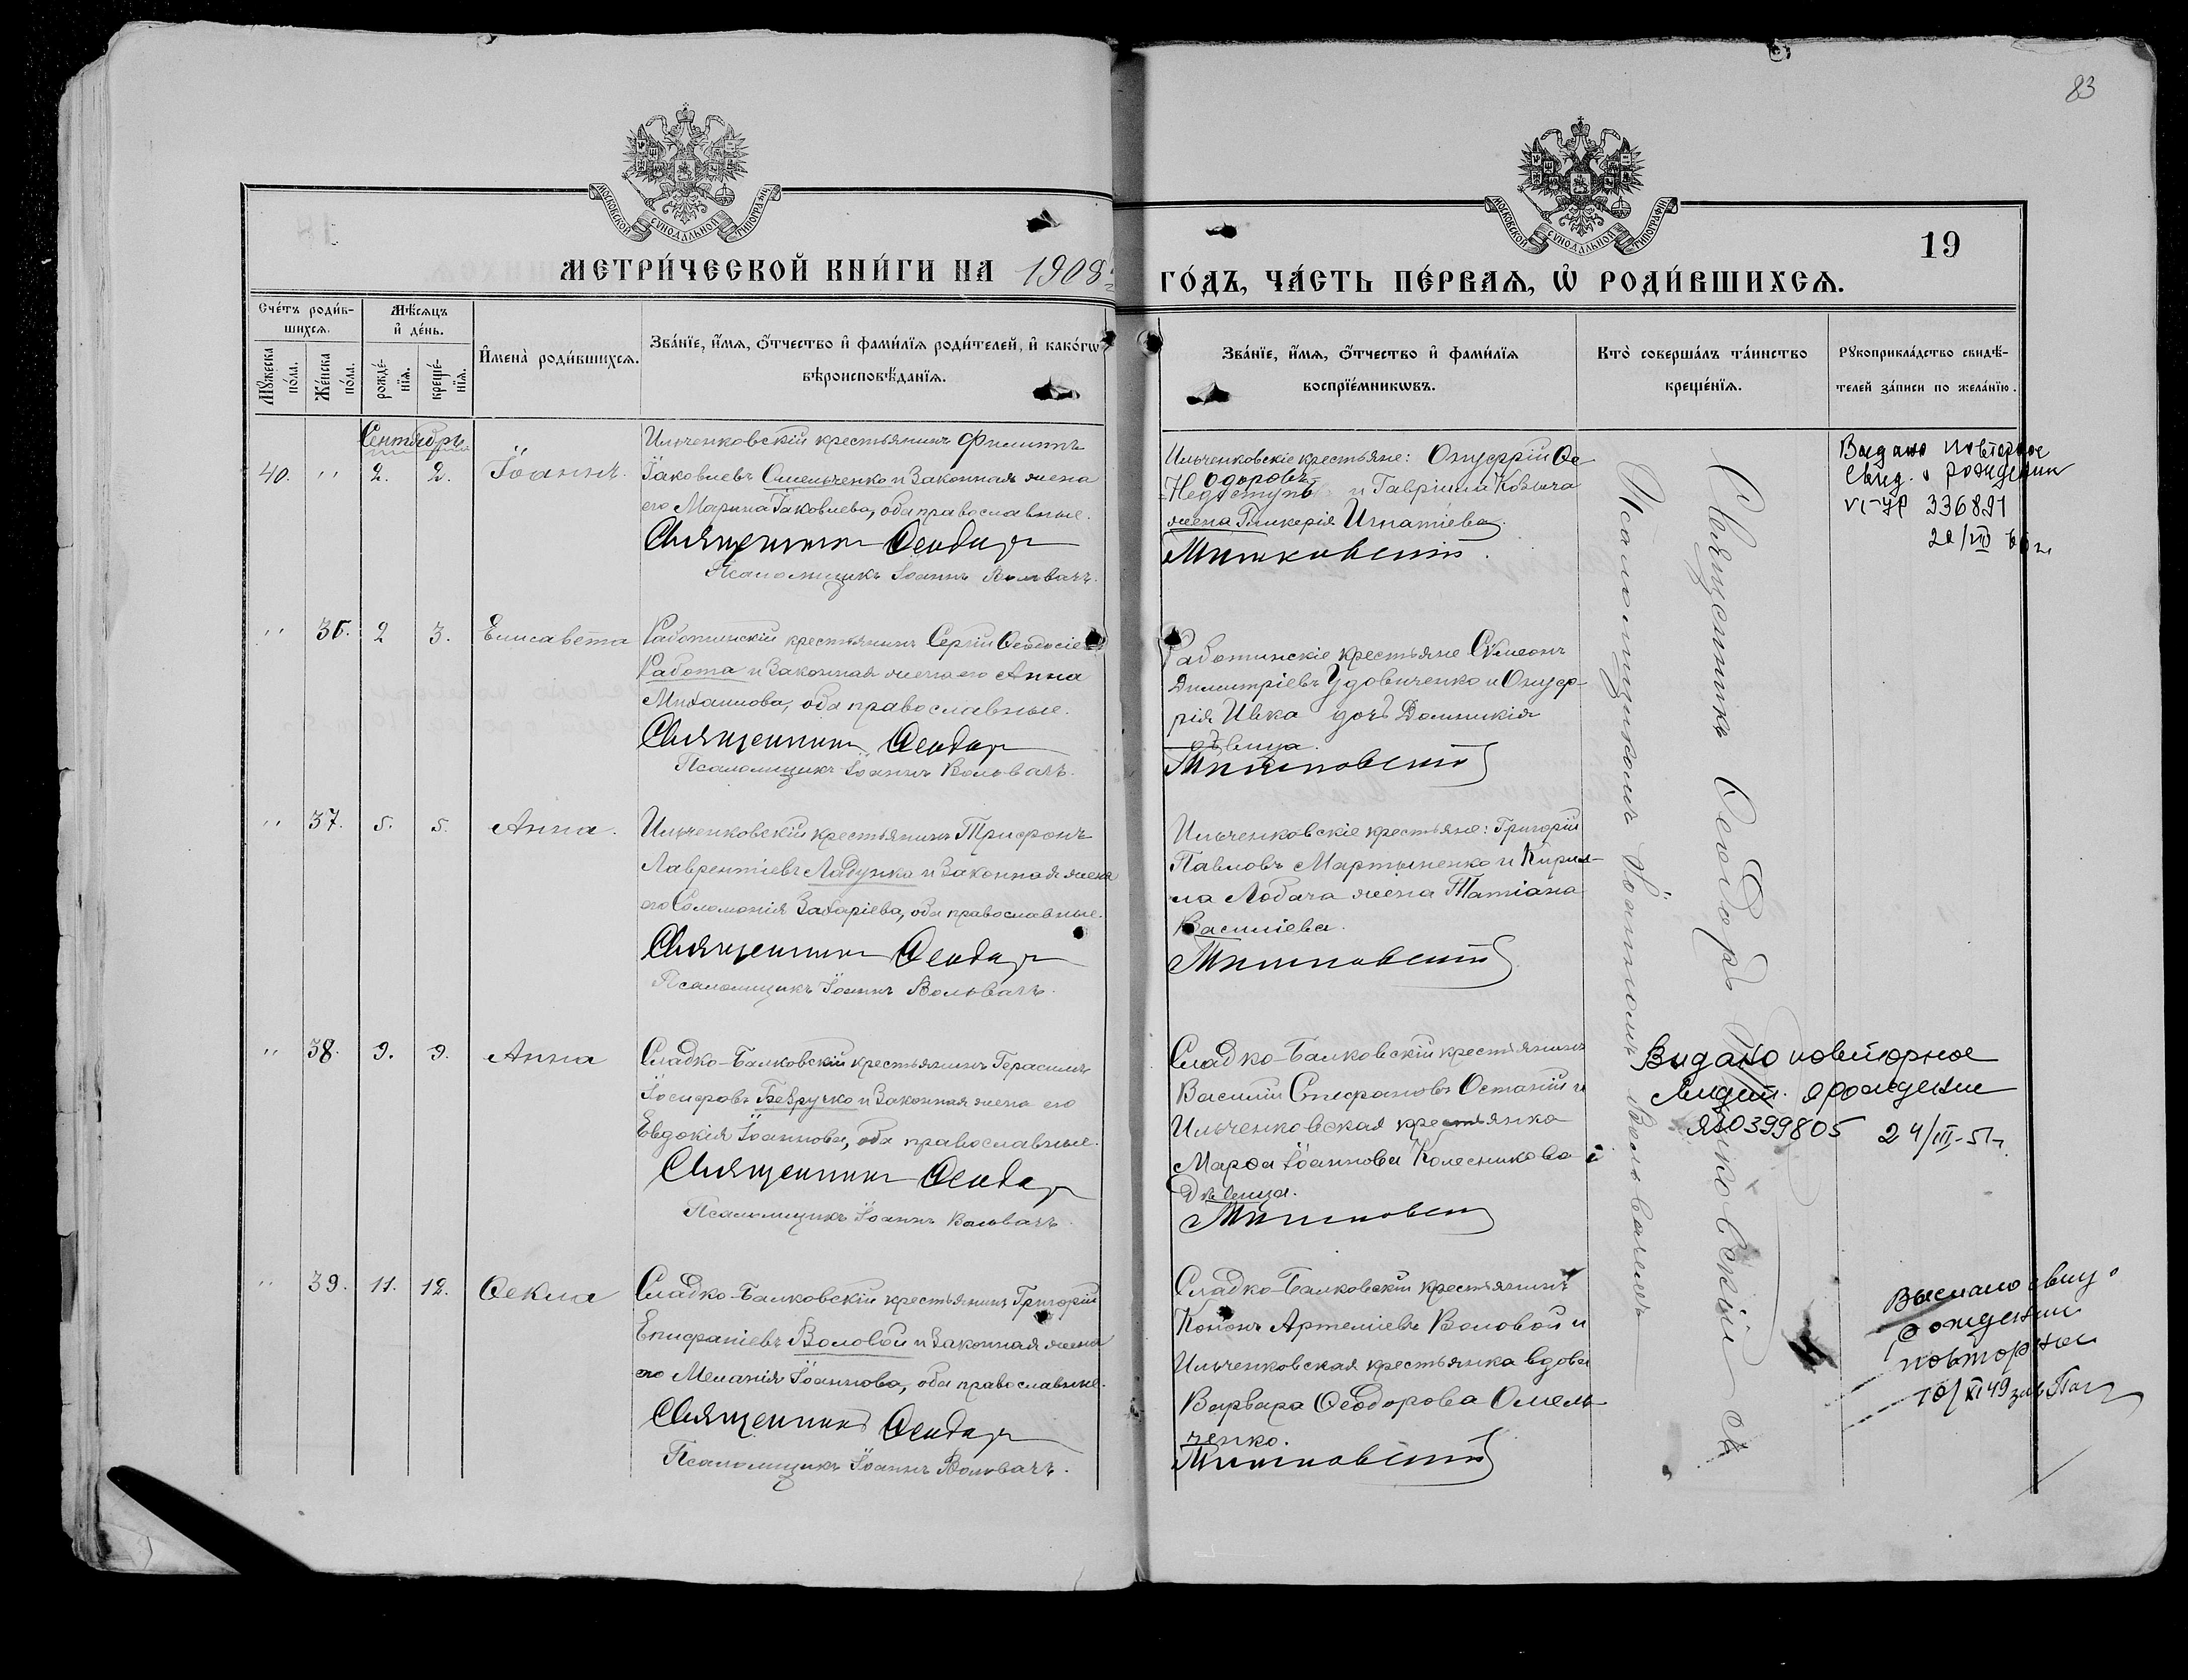 83
МОСКОВСКОЙ СУНОДАЛЬНОЙ ТИПОГРАФІИ
МОСКОВСКОЙ СУНОДАЛЬНОЙ ТИПОГРАФІИ
19
МЕТРИ́ЧЕСКОЙ КНИ́ГИ НА 1908
ГО́ДЪ, ЧА́СТЬ ПЕ́РВАѦ, Ѡ҆ РОДИ́ВШИХСѦ.
Сче́тъ роди́в-
шихсѧ.
Мѣ́сѧцъ
и҆ де́нь.
Мꙋ́жеска по́ла.
Же́нска по́ла.
рожде́-
нїѧ.
креще́-
нїѧ.
И҆мена̀ роди́вшихсѧ.
Зва́нїе, и҆́мѧ, ѻ҆́тчество и҆ фами́лїѧ роди́телей, и҆ како́гѡ
вѣроисповѣ́данїѧ.
Зва́нїе, и҆́мѧ, ѻ҆́тчество и҆ фами́лїѧ
воспрїе́мникѡвъ.
Кто̀ соверша́лъ та́инство
креще́нїѧ.
Рꙋкоприкла́дство свидѣ́-
телей за́писи по жела́нїю.
Сентябрь
40. " 2. 2. Іоаннъ.
Ильченковскій крестьянинъ Филиппъ
Іаковлевъ Омельченко и законная жена
его Марина Іаковлева, оба православные.
Священникъ Ѳеодоръ
Псаломщикъ Іоаннъ Вольвачъ.
Ильченковскіе крестьяне: Онуфрій Ѳе
одоровъ
Недоступъ и Гавріила Козыча
жена Гликерія Игнатіева.
Мишковскій.
Выдано повторное
свид. о рождении
VI-УР 336891
" 36. 2 3. Елисавета
Работинскій крестьянинъ Сергій Ѳеодосіев
Работа и законная жена его Анна
Михаилова, оба православные.
Священникъ Ѳеодоръ
Псаломщикъ Іоаннъ Вольвачъ.
Работинскіе крестьяне Сѵмеонъ
Димитріевъ Удовиченко и Онуф-
рія Ивка дочь Домникія
дѣвица.
Мишковскій
" 37. 5. 5. Анна.
Ильченковскій крестьянинъ Трифонъ
Лаврентіевъ Ладунка и законная жена
его Соломонія Захаріева, оба православные.
Священникъ Ѳеодоръ
Псаломщикъ Іоаннъ Вольвачъ.
Ильченковскіе крестьяне: Григорій
Павловъ Мартыненко и Кирил-
ла Лобача жена Татіана
Василіева.
Мишковскій
" 38. 9. 9. Анна
Сладко-Балковскій крестьянинъ Герасимъ
Іосифовъ Безручко и законная жена его
Евдокія Іоаннова, оба православные.
Священникъ Ѳеодоръ
Псаломщикъ Іоаннъ Вольвачъ.
Сладко-Балковскій крестьянинъ
Василій Стефановъ Остапій и
Ильченковская крестьянка
Марѳа Іоаннова Колесникова
дѣвица.
Мишковскій
Видано повторное
свидет. о рождении
ЯЮ 399805 24/III-51г.
" 39. 11. 12. Ѳекла
Сладко-Балковскій крестьянинъ Григорій
Епифаніевъ Воловой и законная жена
его Меланія Іоаннова, оба православные.
Священникъ Ѳеодоръ
Псаломщикъ Іоаннъ Вольвачъ.
Сладко-Балковскій крестьянинъ
Кононъ Артеміевъ Воловой и
Ильченковская крестьянка вдова
Варвара Ѳеодорова Омель-
ченко.
Мишковскій
Выслано свид о
рождении
повторное
Священникъ Ѳеодоръ Мишковскій съ
Псаломщикомъ Іоанномъ Вольвачемъ